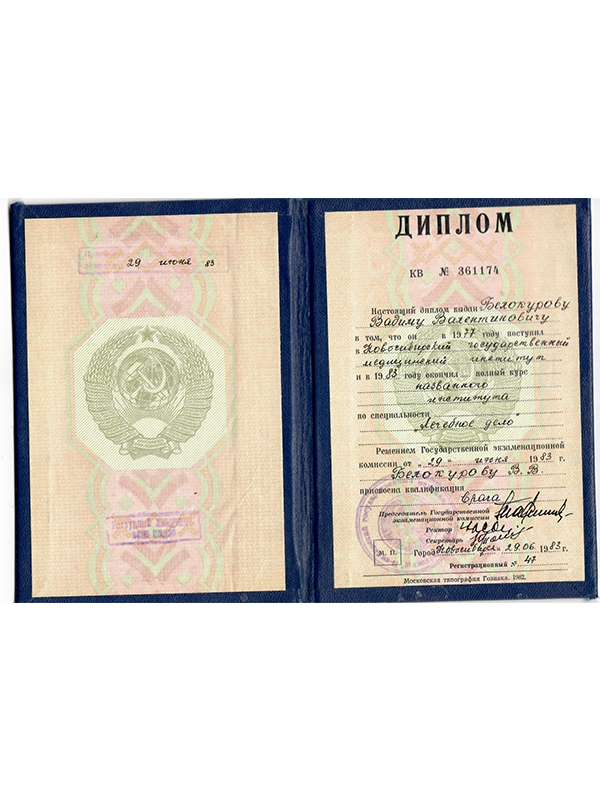 29 июня 83
ДИПЛОМ
КВ № 361174
Настоящий диплом выдан Белокурову
Вадиму Валентиновичу
в том, что он в 1977 году поступил
в Новосибирский государственный
медицинский институт
и в 1983 году окончил полный курс
названного
института
по специальности
"Лечебное дело"
Решением Государственной экзаменационной
комиссии от "29" июня 1983 г.
Белокурову В. В.
присвоена квалификация
Врача
Председатель Государственной
экзаменационной комиссии
Ректор
Секретарь
М. П.
Город Новосибирск 29.06 1983 г.
Регистрационный № 47
Московская типография Гознака. 1982.